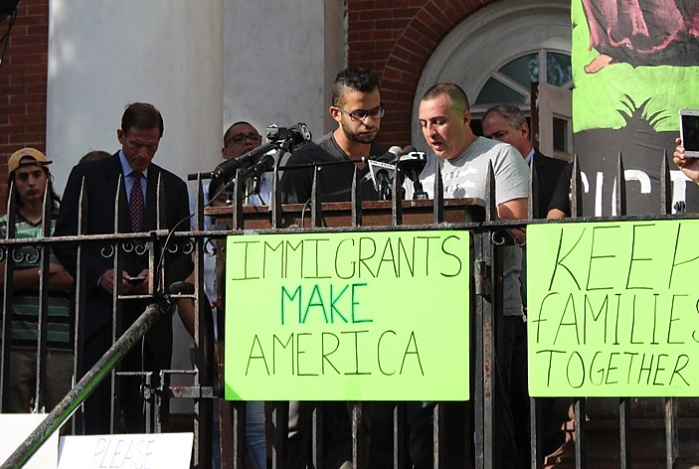 IMMIGRANTS
MAKE
AMERICA
KEEP
fAMILIES
TOGETHER
PLEASE